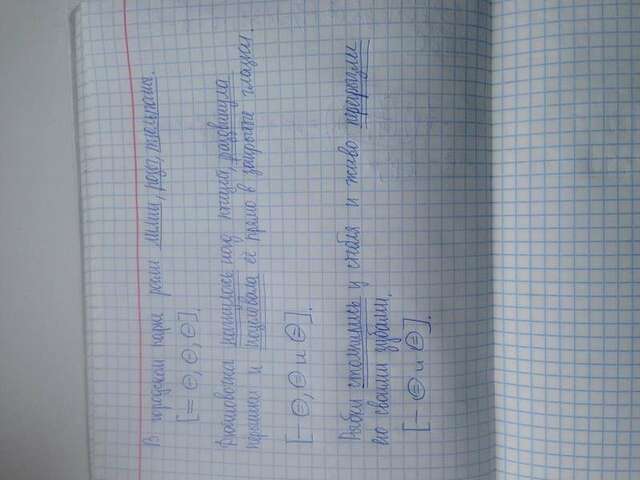 В городском парке росли лилии, розы, тюльпаны.
[= ⊖, ⊖, ⊖].
Дюймовочка нагнулась над птицей, раздвинула
пёрышки и поцеловала её прямо в закрытые глазки.
[– ⊜, ⊜ и ⊜].
Рыбки столпились у стебля и живо перегрызли
его своими зубами.
[– ⊜ и ⊜].